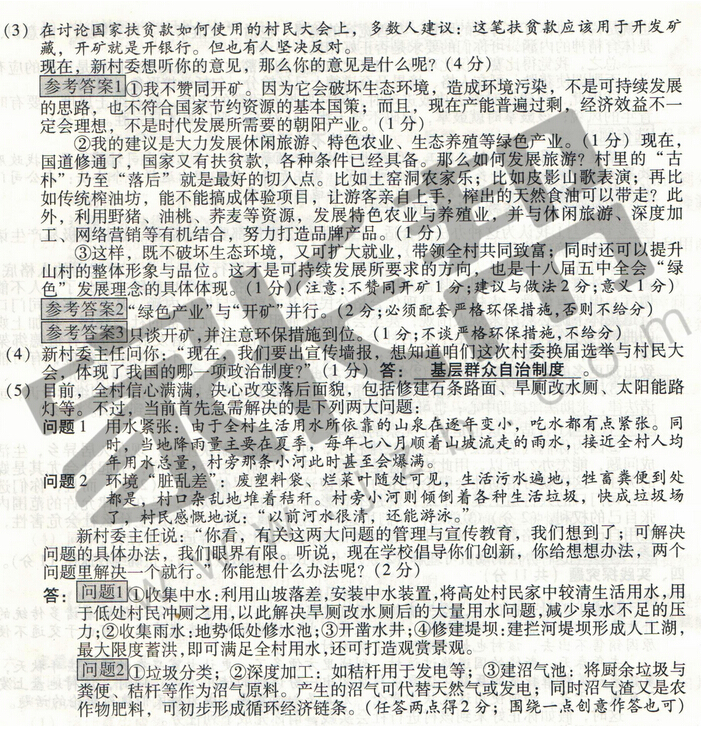 (3) 在讨论国家扶贫款如何使用的村民大会上，多数人建议：这笔扶贫款应该用于开发矿
藏，开矿就是开银行。但也有人坚决反对。
现在，新村委想听你的意见，那么你的意见是什么呢？(4分)
参考答案1①我不赞同开矿。因为它会破坏生态环境，造成环境污染，不是可持续发展
的思路，也不符合国家节约资源的基本国策；而且，现在产能普遍过剩，经济效益不一
定会理想，不是时代发展所需要的朝阳产业。(1分)
②我的建议是大力发展休闲旅游、特色农业、生态养殖等绿色产业。(1分)现在，
国道修通了，国家又有扶贫款，各种条件已经具备。那么如何发展旅游？村里的“古
朴”乃至“落后”就是最好的切入点。比如土窑洞农家乐；比如皮影山歌表演；再比
如传统榨油坊，能不能搞成体验项目，让游客亲自上手，榨出的天然食油可以带走？此
外，利用野猪、油桃、荞麦等资源，发展特色农业与养殖业，并与休闲旅游、深度加
工、网络营销等有机结合，努力打造品牌产品。(1分)
③这样，既不破坏生态环境，又可扩大就业，带领全村共同致富；同时还可以提升
山村的整体形象与品位。这才是可持续发展所要求的方向，也是十八届五中全会“绿
色”发展理念的具体体现。(1分)(注意：不赞同开矿1分；建议与做法2分；意义1分)
参考答案2“绿色产业”与“开矿”并行。(2分；必须配套严格环保措施，否则不给分)
参考答案3只谈开矿，并注意环保措施到位。(1分；不谈严格环保措施，不给分)
(4) 新村委主任问你：“现在，我们要出宣传墙报，想知道咱们这次村委换届选举与村民大
会，体现了我国的哪一项政治制度？”(1分)答： 基层群众自治制度 。
(5) 目前，全村信心满满，决心改变落后面貌，包括修建石条路面、旱厕改水厕、太阳能路
灯等。不过，当前首先急需解决的是下列两大问题：
问题1 用水紧张：由于全村生活用水所依靠的山泉在逐年变小，吃水都有点紧张。同
时，当地降雨量主要在夏季，每年七八月顺着山坡流走的雨水，接近全村人均
年用水总量，村旁那条小河此时甚至会爆满。
问题2 环境“脏乱差”：废塑料袋、烂菜叶随处可见，生活污水遍地，牲畜粪便到处
都是，村口杂乱地堆着秸秆。村旁小河则倾倒着各种生活垃圾，快成垃圾场
了，村民感慨地说：“以前河水很清，还能游泳。”
新村委主任说：“你看，有关这两大问题的管理与宣传教育，我们想到了；可解决
问题的具体办法，我们眼界有限。听说，现在学校倡导你们创新，你给想想办法，两个
问题里解决一个就行。”你能想什么办法呢？(2分)
答：问题1①收集中水：利用山坡落差，安装中水装置，将高处村民家中较清生活用水，用
于低处村民冲厕之用，以此解决旱厕改水厕后的大量用水问题，减少泉水不足的压
力；②收集雨水：地势低处修水池；③开凿水井；④修建堤坝：建拦河堤坝形成人工湖，
最大限度蓄洪，即可满足全村用水，还可打造观赏景观。
问题2①垃圾分类；②深度加工：如秸秆用于发电等；③建沼气池：将厨余垃圾与
粪便、秸秆等作为沼气原料。产生的沼气可代替天然气或发电；同时沼气渣又是农
作物肥料，可初步形成循环经济链条。(任答两点得2分；围绕一点创意作答也可)